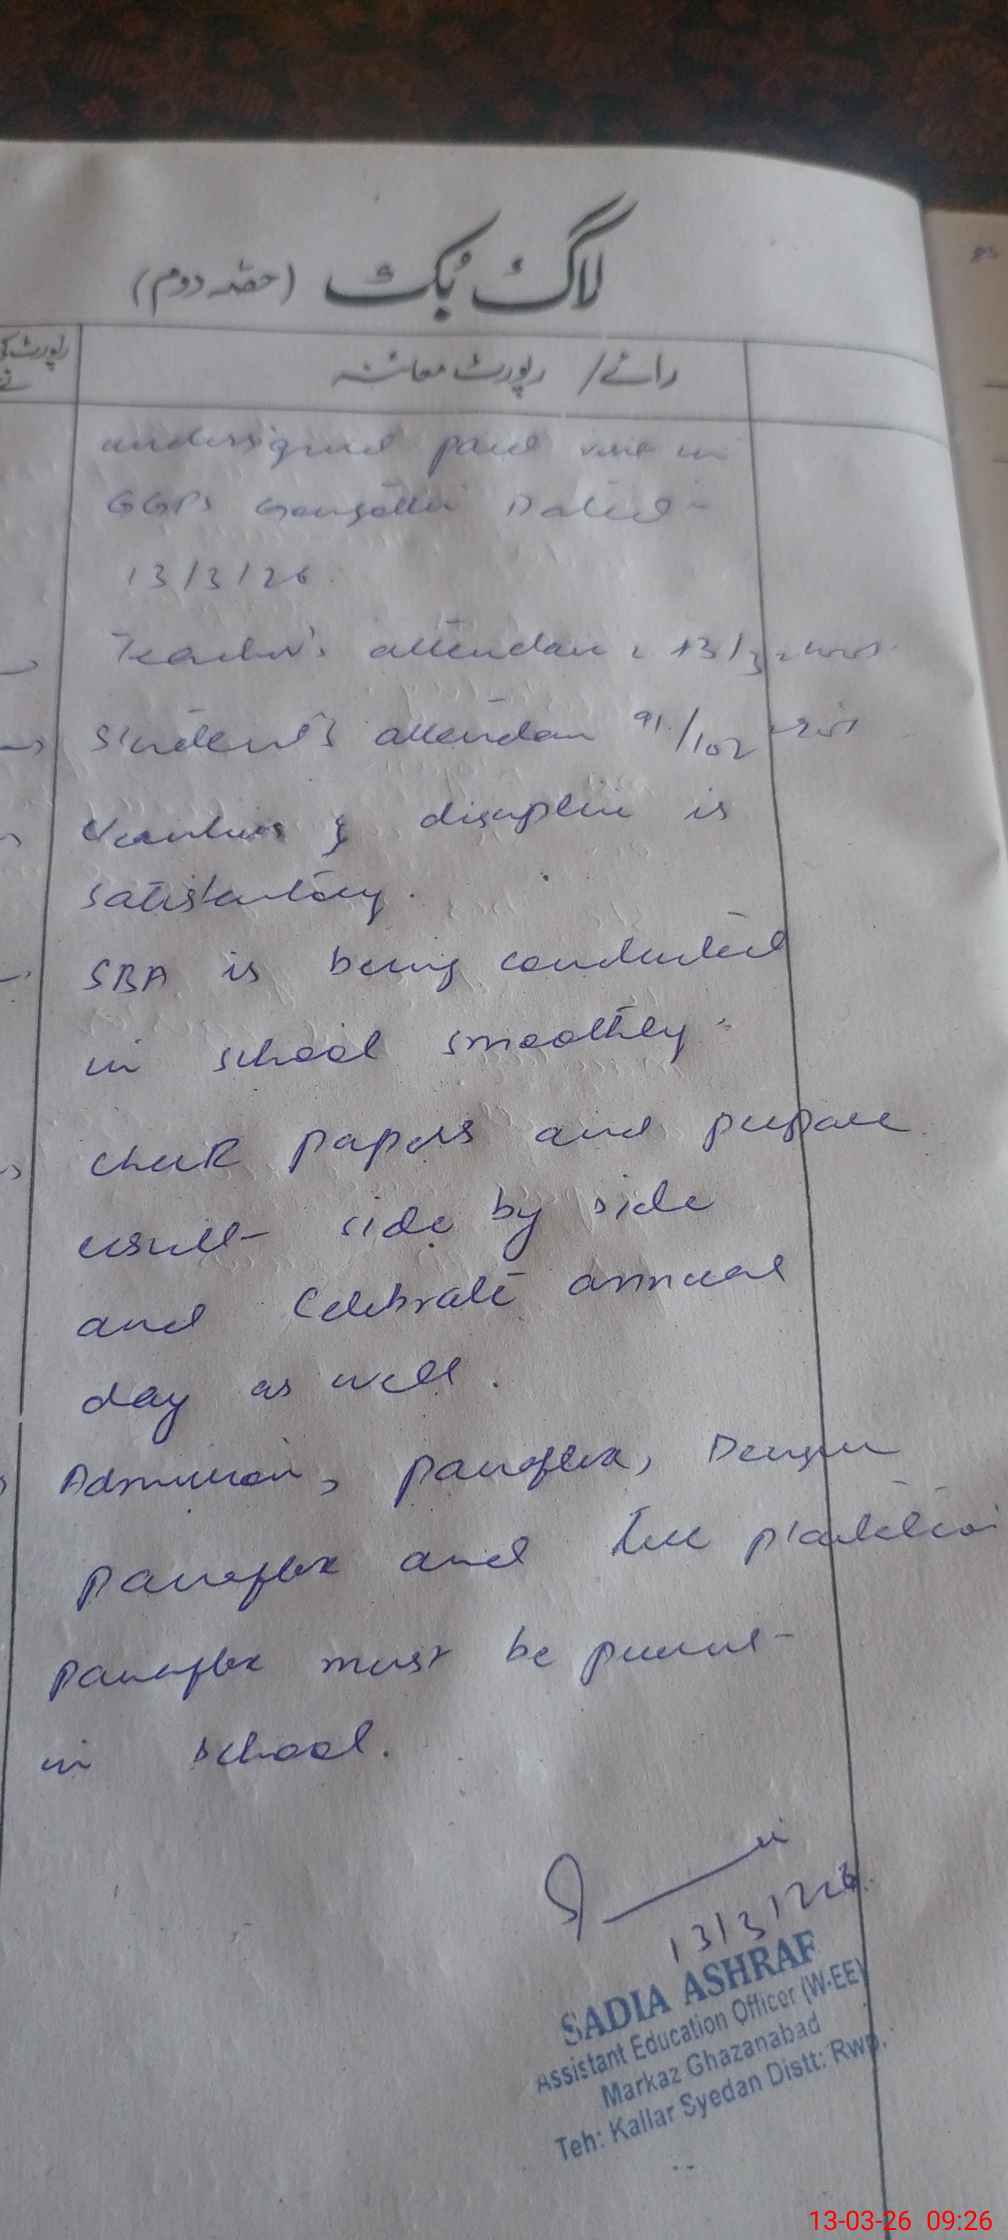 لاگ بُک (حصہ دوم)
رائے / رپورٹ معائنہ
رپورٹ
undersigned paid visit in
GGPS Dated
13/3/26
Teacher's attendance
Student's attendance 91/102
& discipline is
satisfactory.
SBA is being conducted
in school smoothly.
check papers and prepare
result side by side
and Celebrate annual
day as well.
Admission, panaflex, Dengue
panaflex and tree plantation
panaflex must be present
in school.
13/3/2026
SADIA ASHRAF
Assistant Education Officer (W-EE)
Markaz Ghazanabad
Teh: Kallar Syedan Distt: Rwp.
13-03-26 09:26